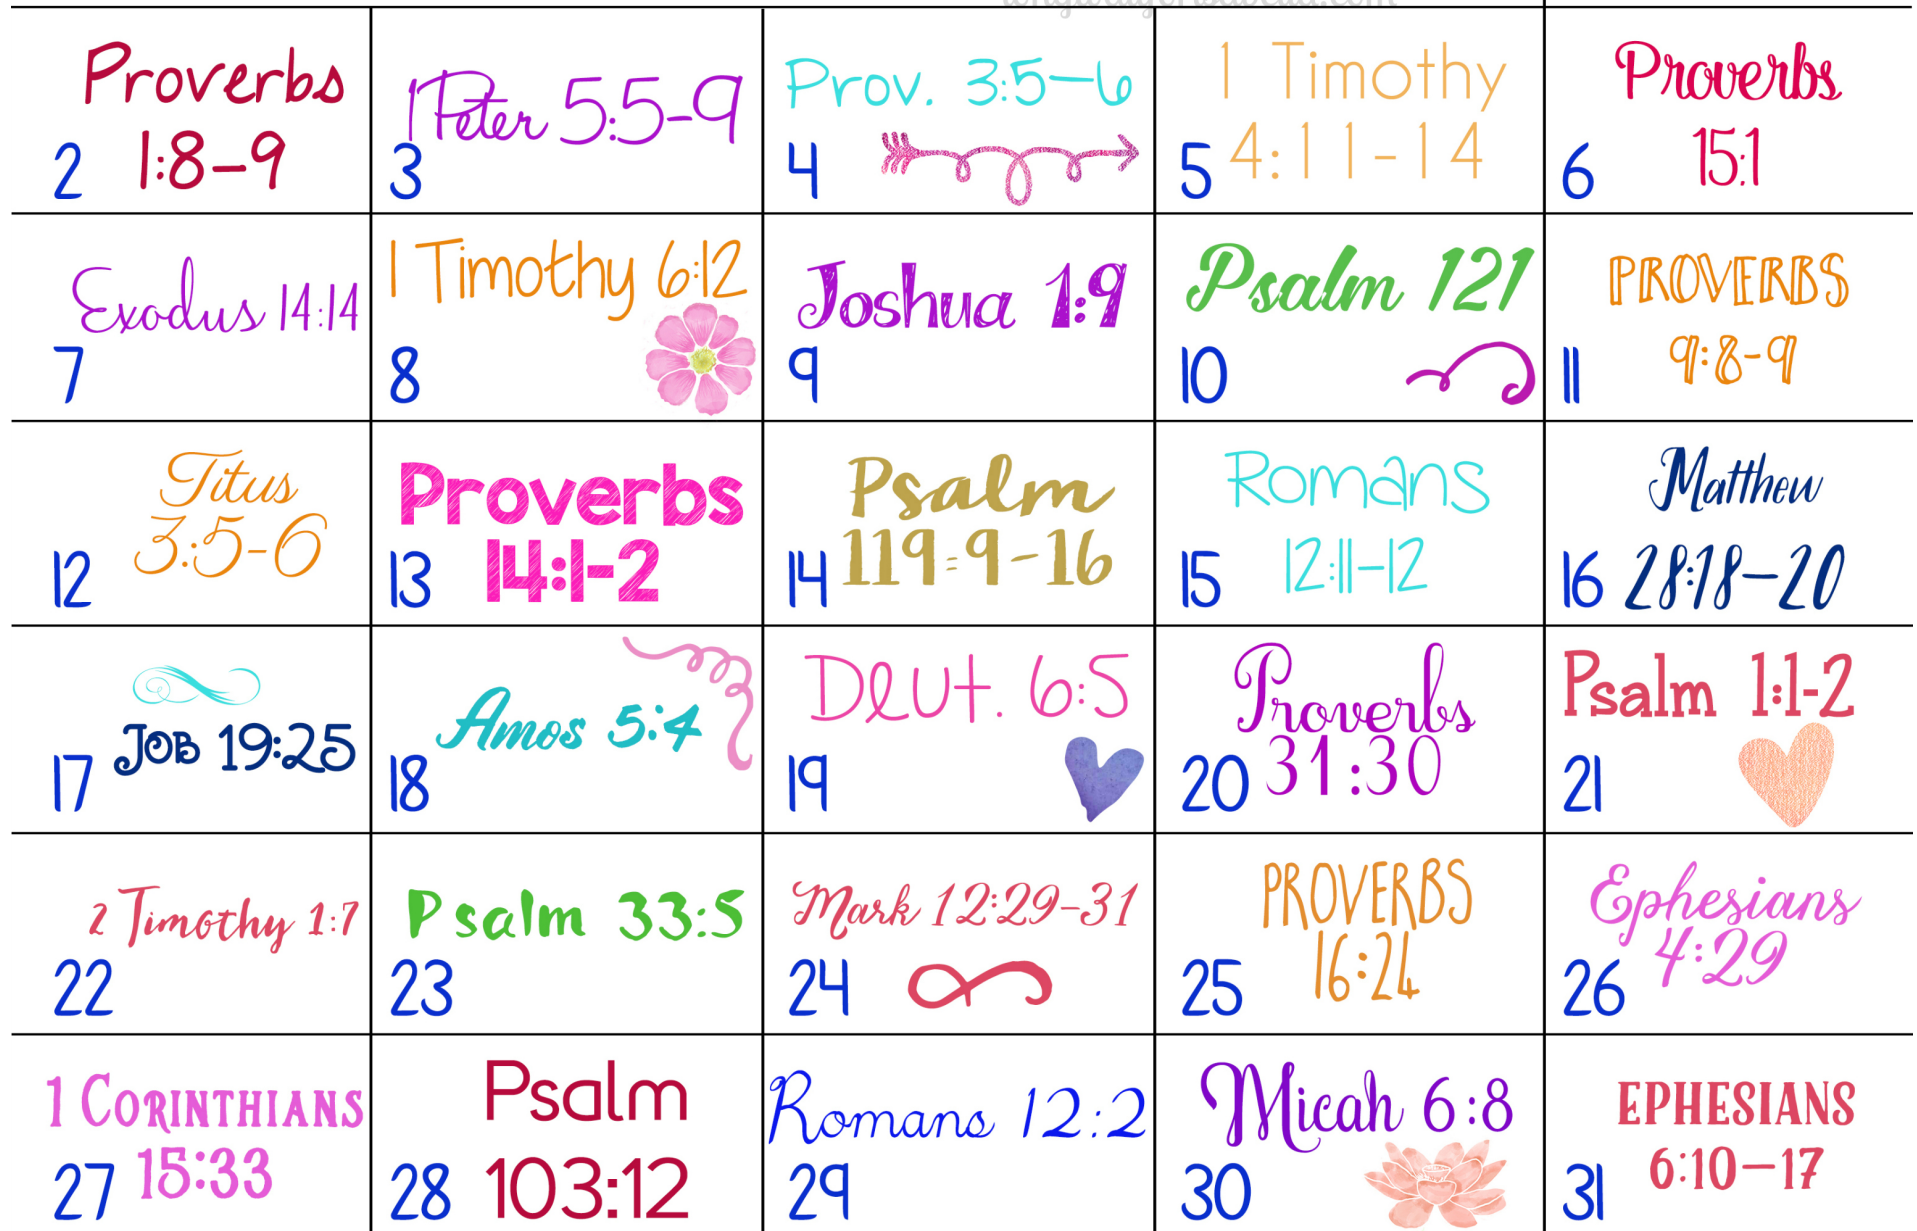 Proverbs
1:8-9
2
1 Peter 5:5-9
3
Prov. 3:5-6
4
1 Timothy
4:11-14
5
Proverbs
15:1
6
Exodus 14:14
7
1 Timothy 6:12
8
Joshua 1:9
9
Psalm 121
10
PROVERBS
9:8-9
11
Titus
3:5-6
12
Proverbs
14:1-2
13
Psalm
119:9-16
14
Romans
12:11-12
15
Matthew
28:18-20
16
Job 19:25
17
Amos 5:4
18
Deut. 6:5
19
Proverbs
31:30
20
Psalm 1:1-2
21
2 Timothy 1:7
22
Psalm 33:5
23
Mark 12:29-31
24
PROVERBS
16:24
25
Ephesians
4:29
26
1 CORINTHIANS
15:33
27
Psalm
103:12
28
Romans 12:2
29
Micah 6:8
30
EPHESIANS
6:10-17
31